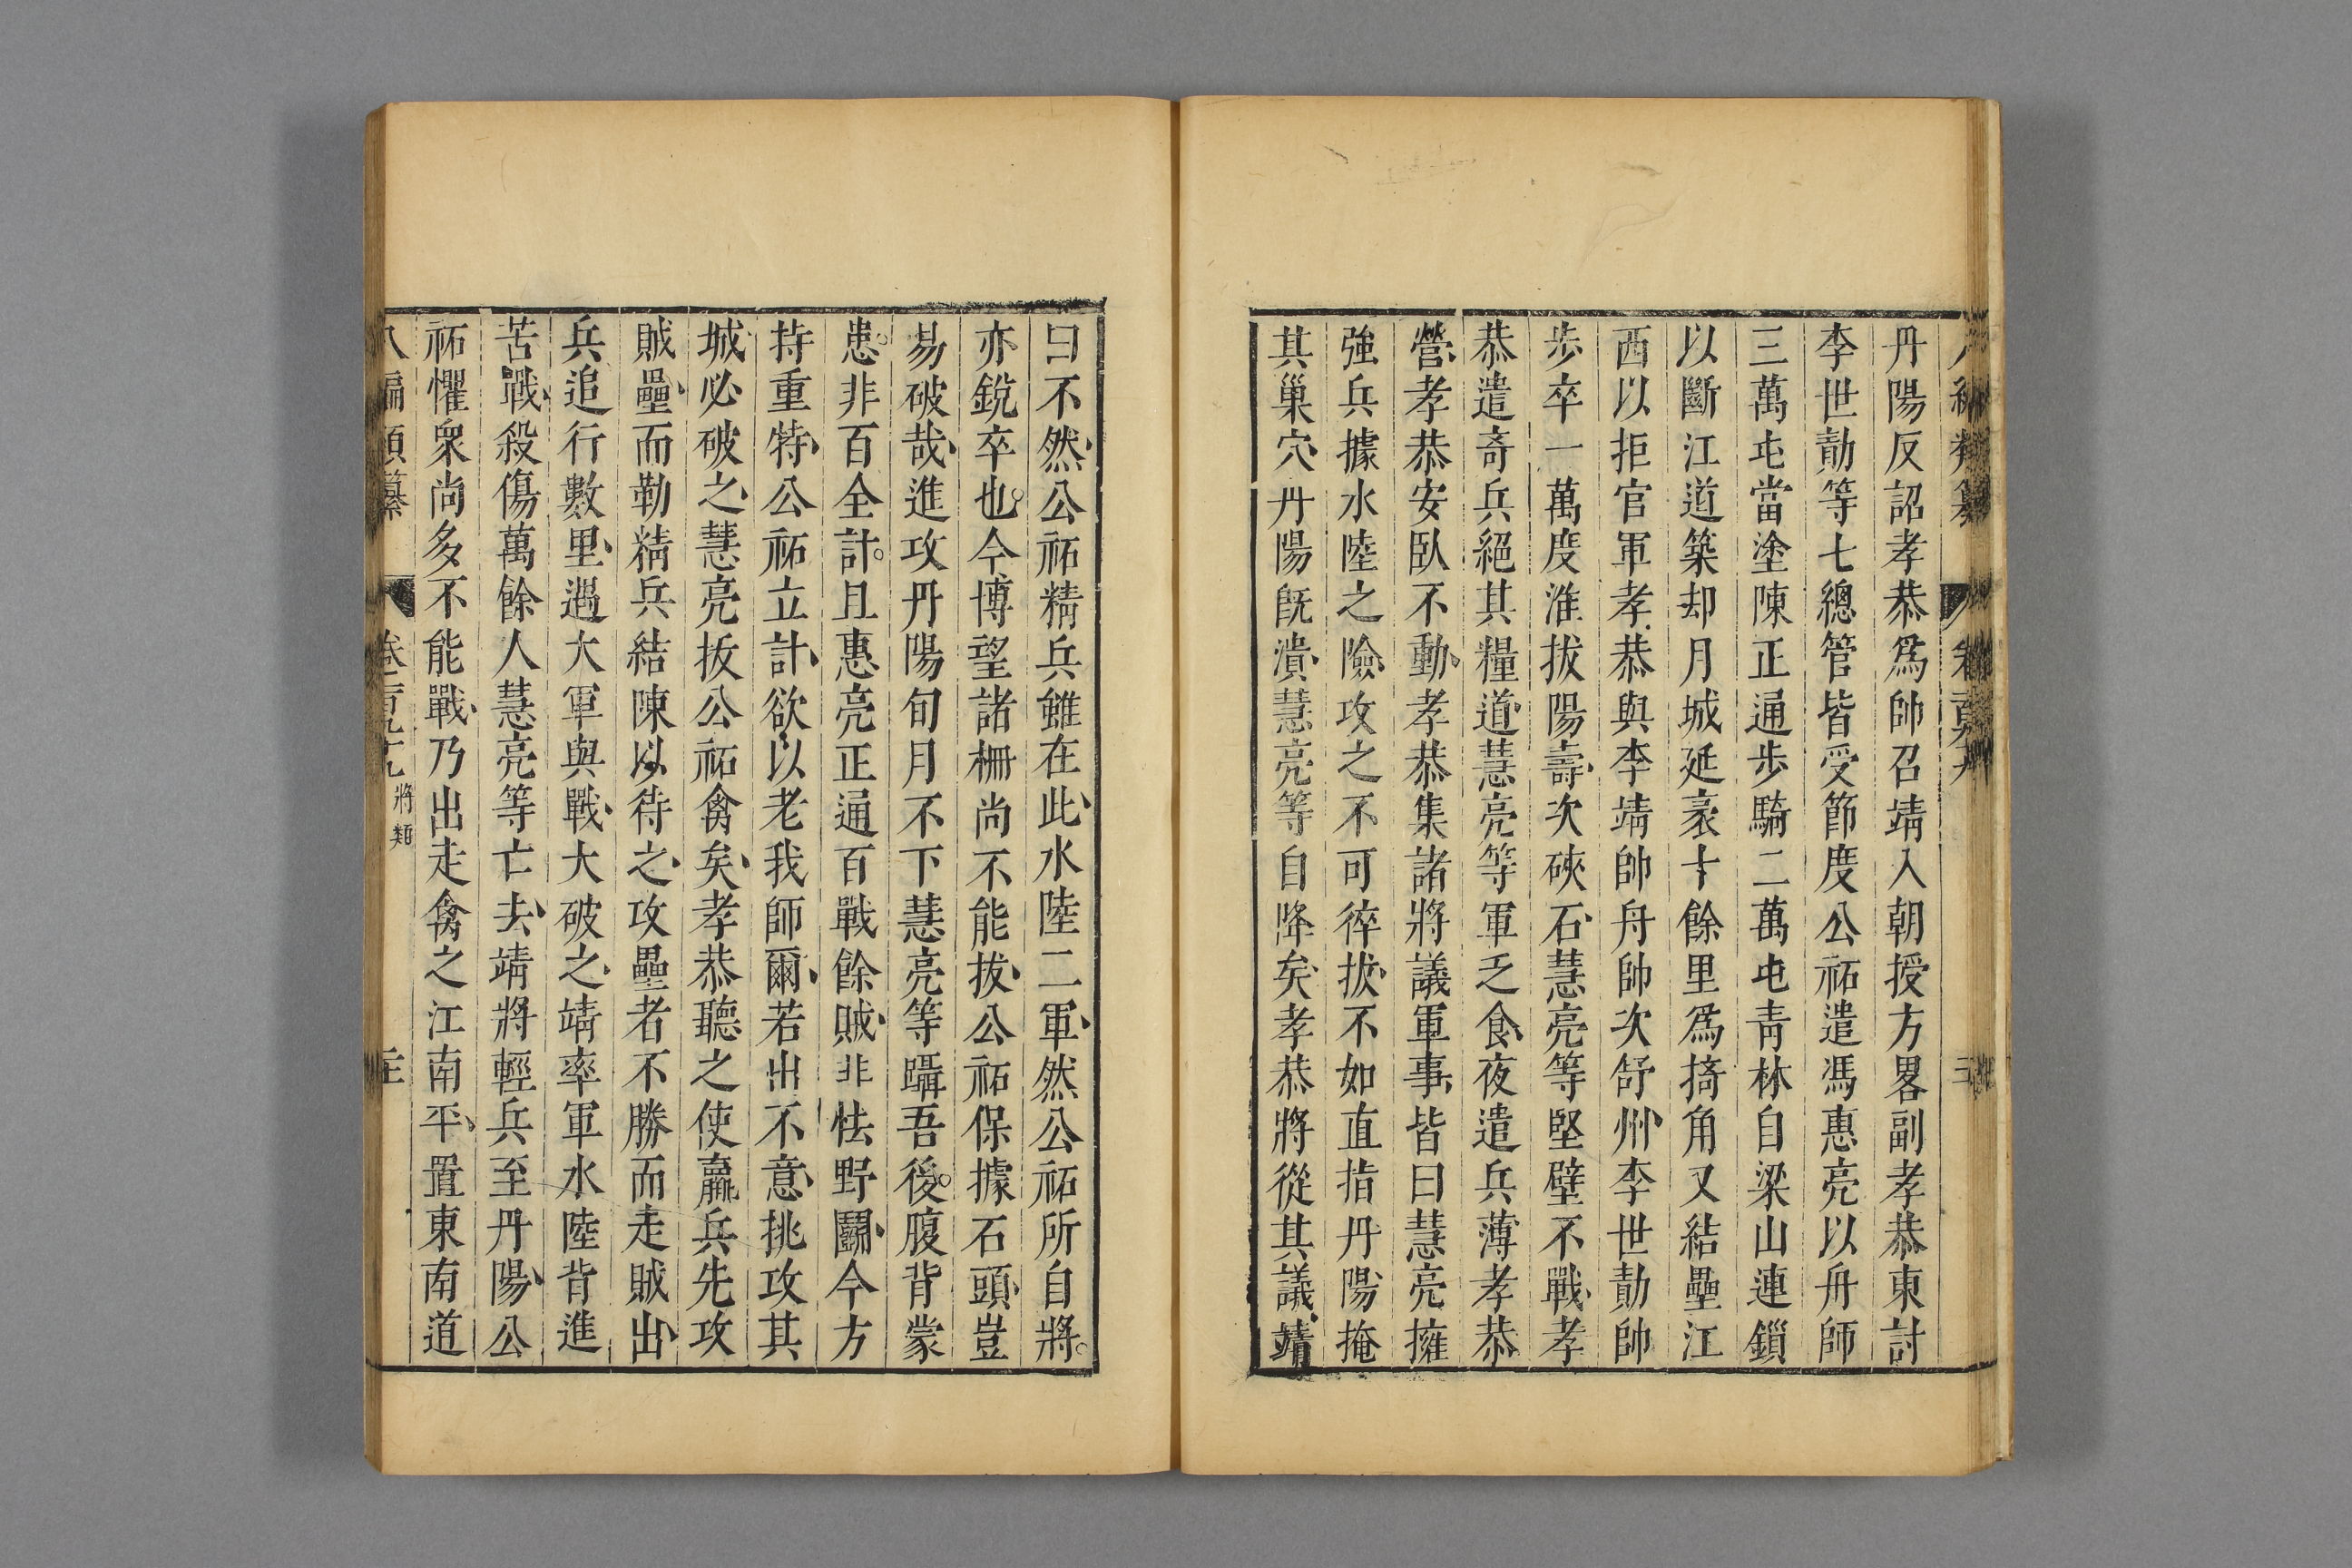 丹陽反詔孝恭爲帥召靖入朝授方畧副孝恭東討
李世勣等七總管皆受節度公祏遣馮惠亮以舟師
三萬屯當塗陳正通步騎二萬屯青林自梁山連鎖
以斷江道築却月城延袤十餘里爲掎角又結壘江
西以拒官軍孝恭與李靖帥舟帥次舒州李世勣帥
步卒一萬度淮拔陽壽次硤石慧亮等堅壁不戰孝
恭遣奇兵絕其糧道慧亮等軍乏食夜遣兵薄孝恭
營孝恭安臥不動孝恭集諸將議軍事皆曰慧亮擁
強兵據水陸之險攻之不可猝拔不如直指丹陽掩
其巢穴丹陽旣潰慧亮等自降矣孝恭將從其議靖
曰不然公祏精兵雖在此水陸二軍然公祏所自將
亦銳卒也今博望諸柵尚不能拔公祏保據石頭豈
易破哉進攻丹陽旬月不下慧亮等躡吾後腹背蒙
患非百全計且惠亮正通百戰餘賊非怯野鬭今方
持重特公祏立計欲以老我師爾若出不意挑攻其
城必破之慧亮扳公祏禽矣孝恭聽之使羸兵先攻
賊壘而勒精兵結陳以待之攻壘者不勝而走賊出
兵追行數里遇大軍與戰大破之靖率軍水陸背進
苦戰殺傷萬餘人慧亮等亡去靖將輕兵至丹陽公
祏懼衆尚多不能戰乃出走禽之江南平置東南道
八編類纂 卷百九十九 將類